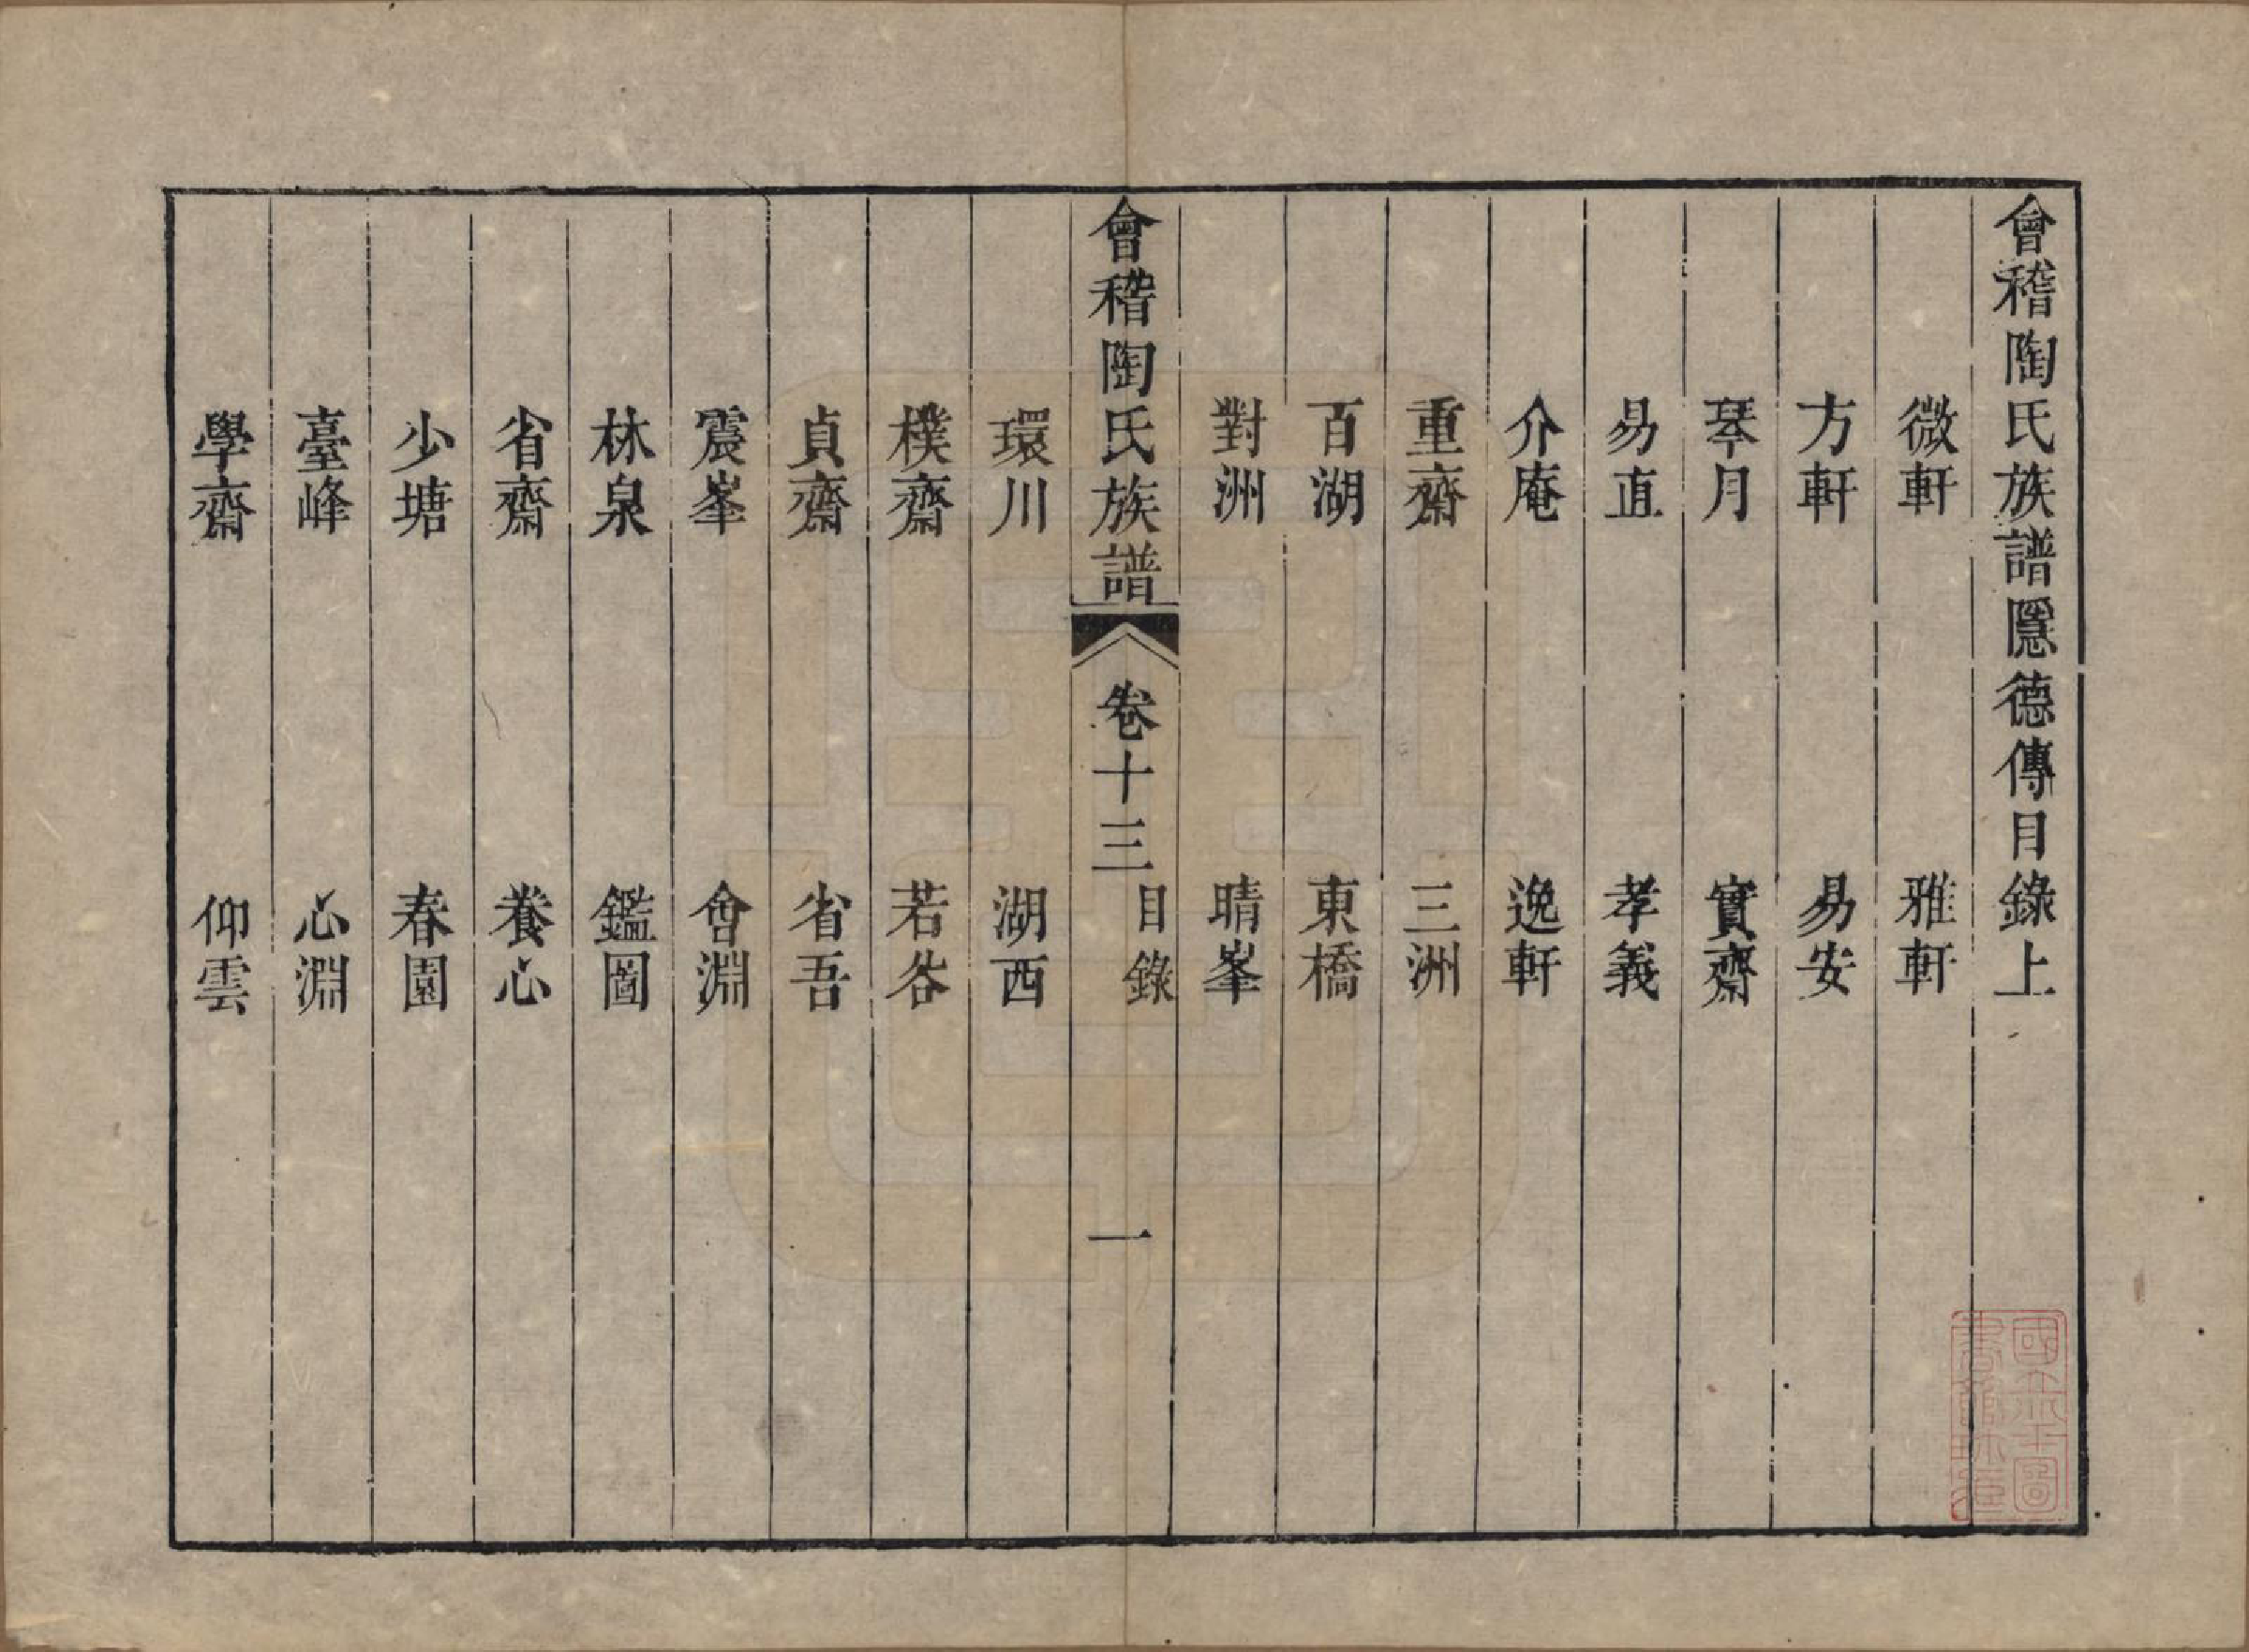 會稽陶氏族譜隱德傳目錄上
微軒　雅軒
方軒　易安
琴月　實齋
易直　孝義
介庵　逸軒
重齋　三洲
百湖　東橋
對洲　晴峯
會稽陶氏族譜　卷十三　目錄　一
環川　湖西
樸齋　若谷
貞齋　省吾
震峯　會淵
林泉　鑑圖
省齋　養心
少塘　春園
臺峰　心淵
學齋　仰雲